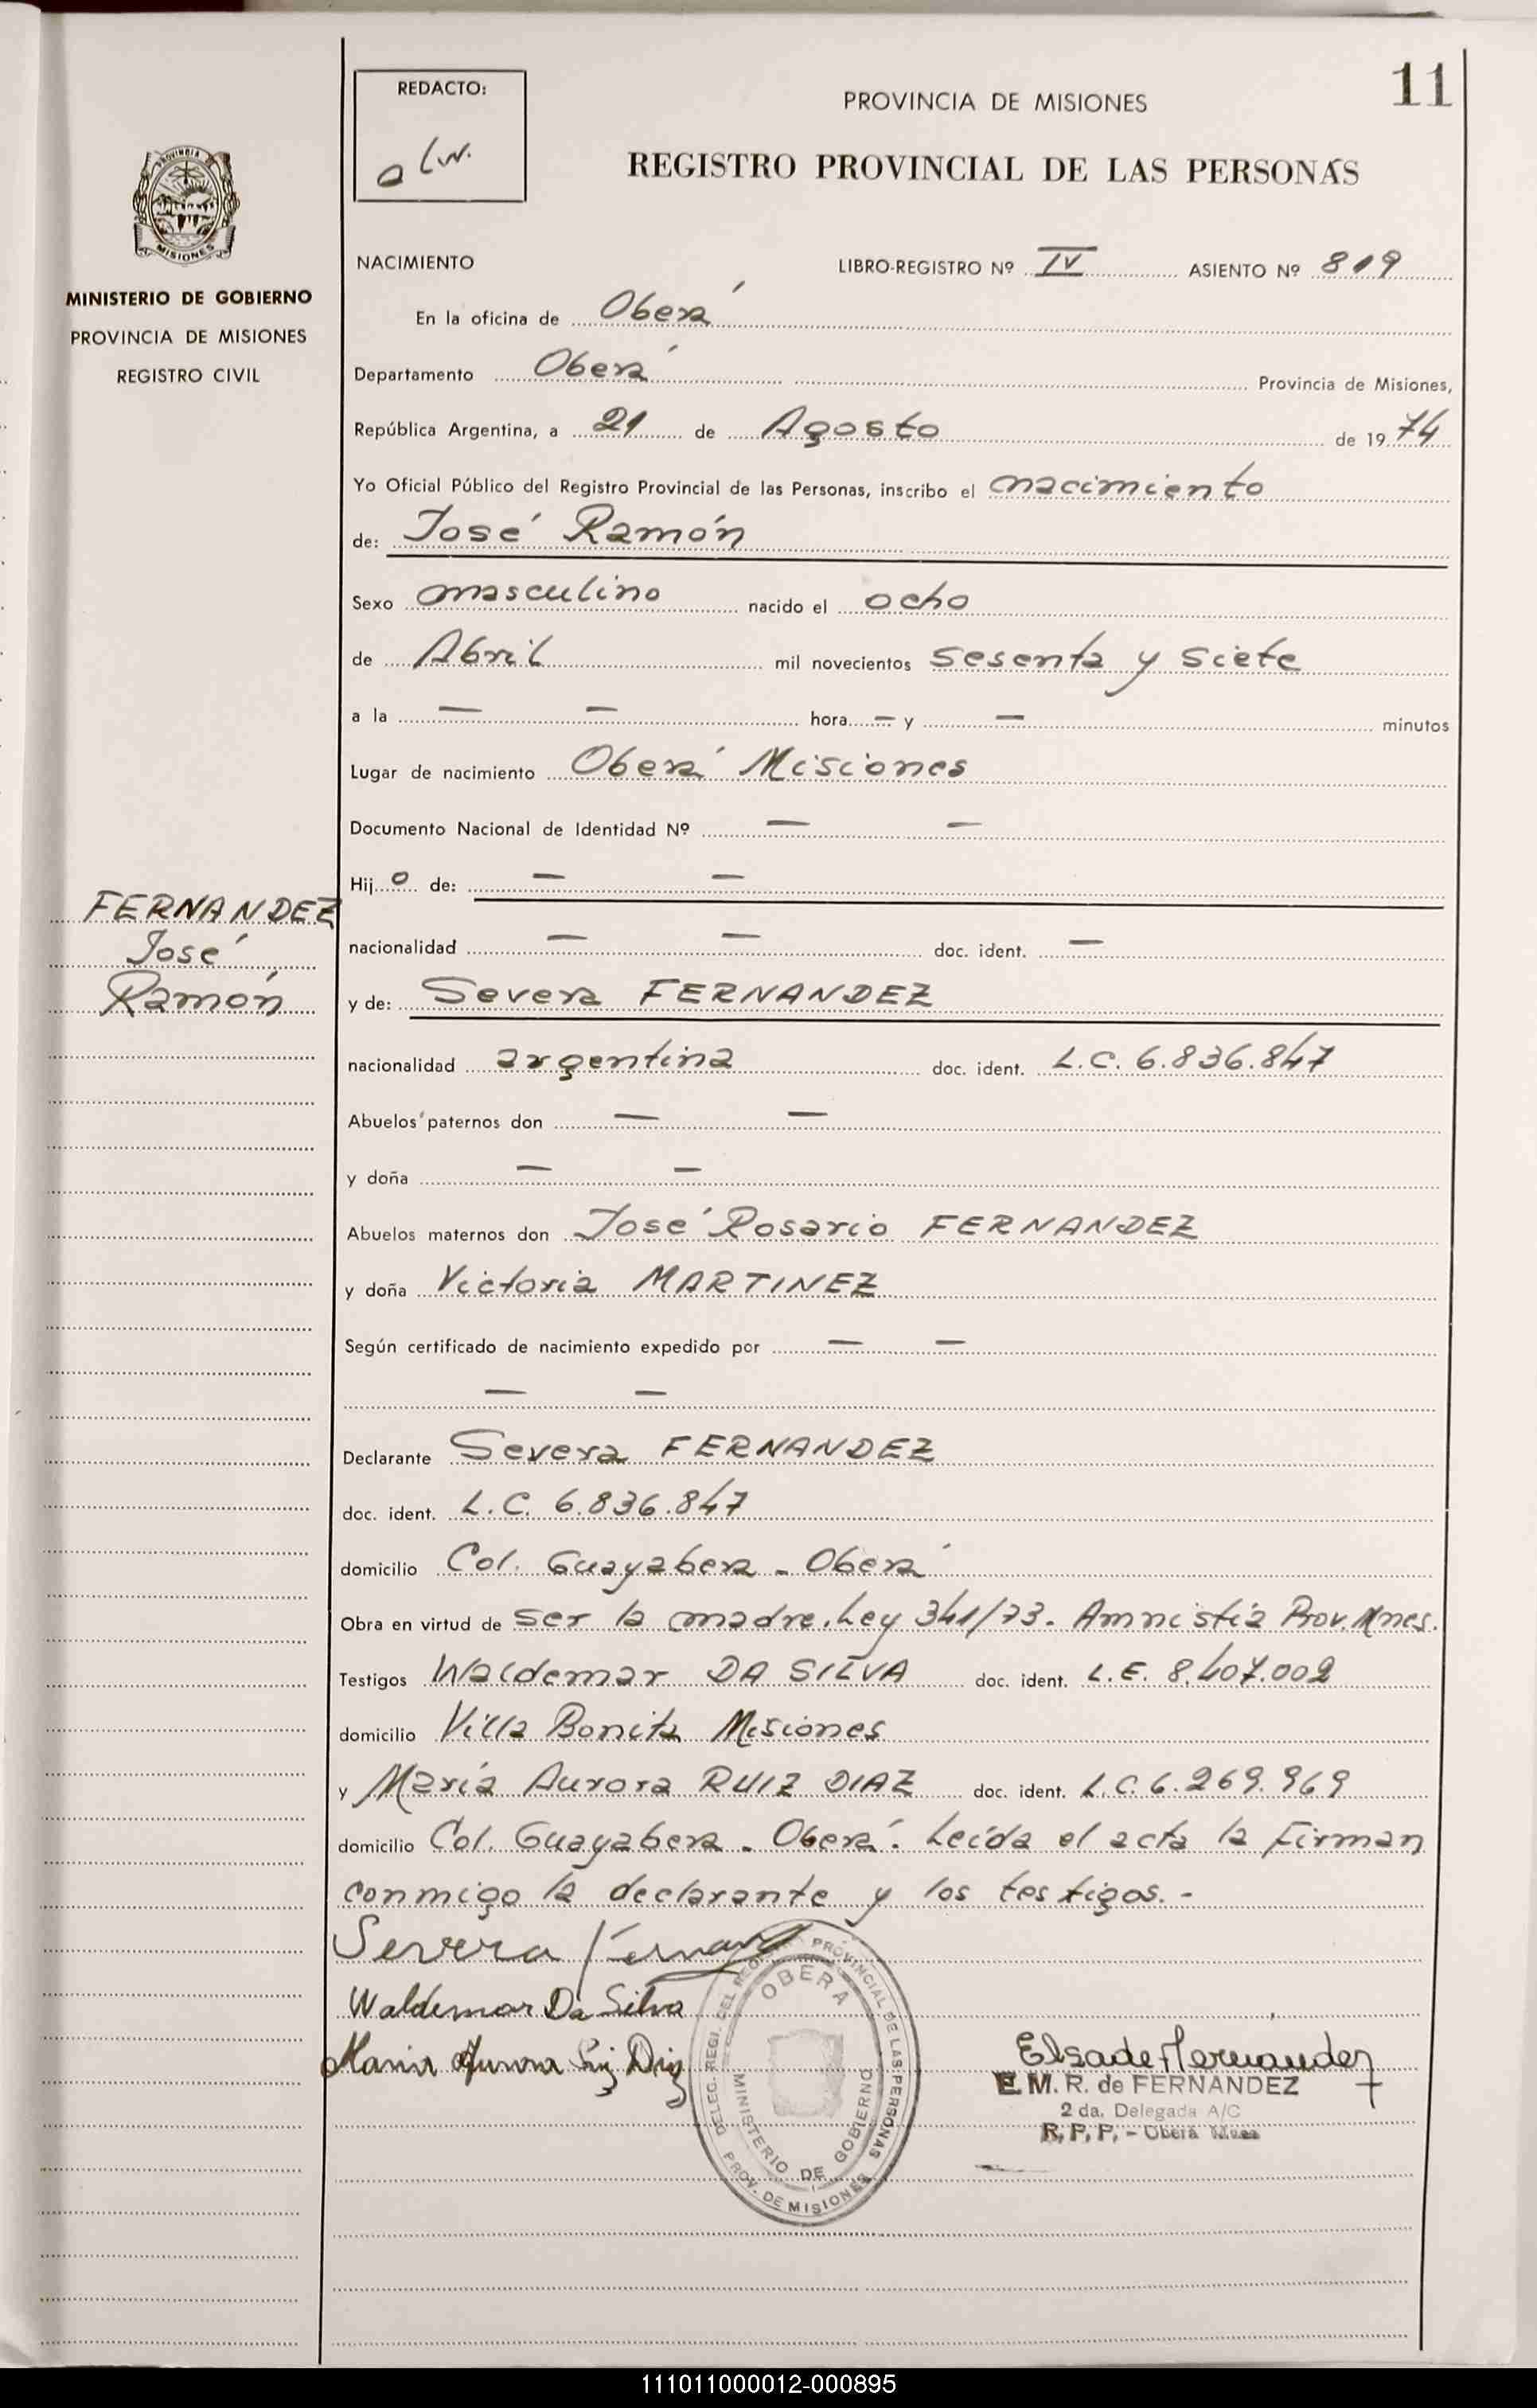 11
REDACTO:
PROVINCIA DE MISIONES
REGISTRO PROVINCIAL DE LAS PERSONAS
PROVINCIA
MISIONES
MINISTERIO DE GOBIERNO
PROVINCIA DE MISIONES
REGISTRO CIVIL
NACIMIENTO LIBRO-REGISTRO Nº IV ASIENTO Nº 819
En la oficina de Oberá
Departamento Oberá Provincia de Misiones,
República Argentina, a 21 de Agosto de 1974
Yo Oficial Público del Registro Provincial de las Personas, inscribo el nacimiento
de: José Ramón
Sexo masculino nacido el ocho
de Abril mil novecientos sesenta y siete
a la — — hora — y — minutos
Lugar de nacimiento Oberá Misiones
Documento Nacional de Identidad Nº — —
Hijo de: — —
FERNANDEZ
José
Ramón
nacionalidad — — doc. ident. —
y de: Severa FERNANDEZ
nacionalidad argentina doc. ident. L.C. 6.836.847
Abuelos paternos don — —
y doña — —
Abuelos maternos don José Rosario FERNANDEZ
y doña Victoria MARTINEZ
Según certificado de nacimiento expedido por — —
— —
Declarante Severa FERNANDEZ
doc. ident. L.C. 6.836.847
domicilio Col. Guayabera - Oberá
Obra en virtud de ser la madre. Ley 341/73. Amnistía Prov. Mnes.
Testigos Waldemar DA SILVA doc. ident. L.E. 8.407.002
domicilio Villa Bonita Misiones
y María Aurora RUIZ DIAZ doc. ident. L.C. 6.269.969
domicilio Col. Guayabera - Oberá. Leída el acta la firman
conmigo la declarante y los testigos. -
Severa Fernand
Waldemar Da Silva
Maria Aurora Ruiz Diaz
DELEG. REGI. DEL REGIST. PROVINCIAL DE LAS PERSONAS
OBERA
MINISTERIO DE GOBIERNO
PROV. DE MISIONES
Elsa de Fernandez
E. M. R. de FERNANDEZ
2 da. Delegada A/C
R. P. P. - Oberá Mnes
111011000012-000895